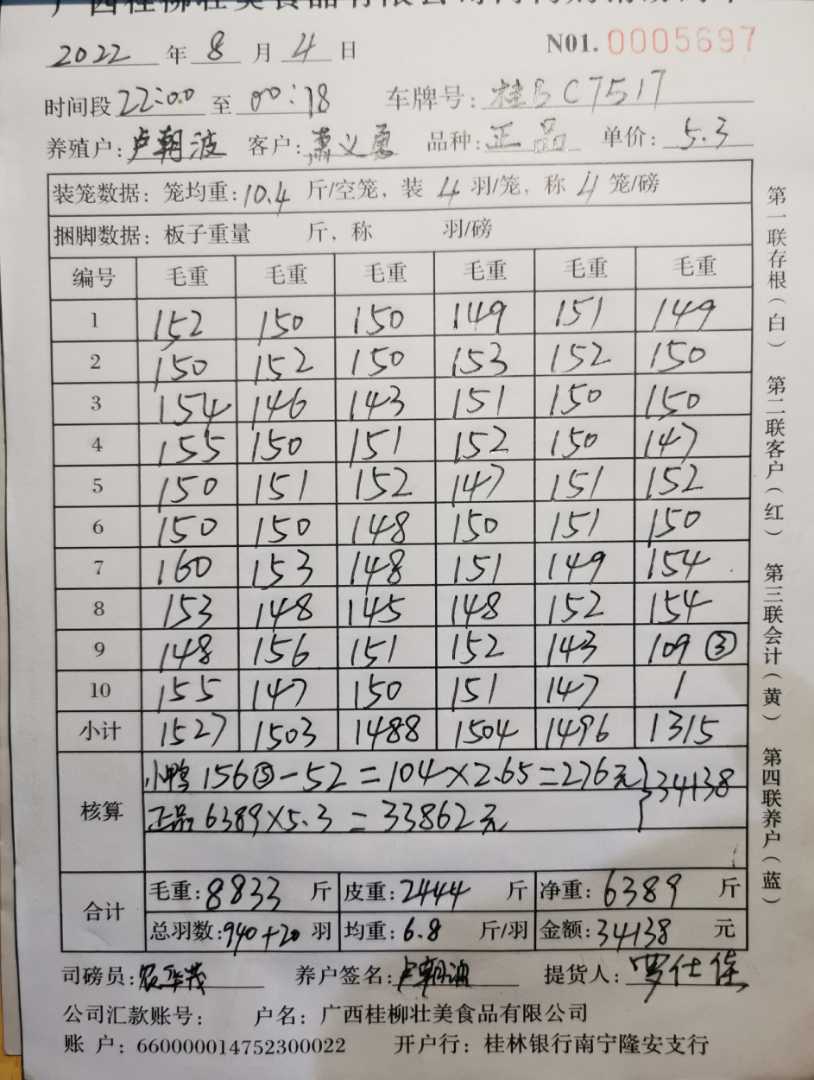 2022年8月4日 N01.0005697
时间段22:00至00:18 车牌号:桂BC7517
养殖户:卢朝波 客户:萧义勇 品种:正品 单价:5.3
装笼数据:笼均重:10.4斤/空笼,装4羽/笼,称4笼/磅
捆脚数据:板子重量 斤,称 羽/磅
编号 毛重 毛重 毛重 毛重 毛重 毛重
1 152 150 150 149 151 149
2 150 152 150 153 152 150
3 154 146 143 151 150 150
4 155 150 151 152 150 147
5 150 151 152 147 151 152
6 150 150 148 150 151 150
7 160 153 148 151 149 154
8 153 148 145 148 152 154
9 148 156 151 152 143 109③
10 155 147 150 151 147 1
小计 1527 1503 1488 1504 1496 1315
核算
小鸭156⑤-52=104×2.65=276元}34138
正品6389×5.3=33862元
合计
毛重:8833斤 皮重:2444斤 净重:6389斤
总羽数:940+20羽 均重:6.8斤/羽 金额:34138元
司磅员:农华茂 养户签名:卢朝波 提货人:罗仕佳
公司汇款账号: 户名:广西桂柳壮美食品有限公司
账户:660000014752300022 开户行:桂林银行南宁隆安支行
第一联存根(白) 第二联客户(红) 第三联会计(黄) 第四联养户(蓝)